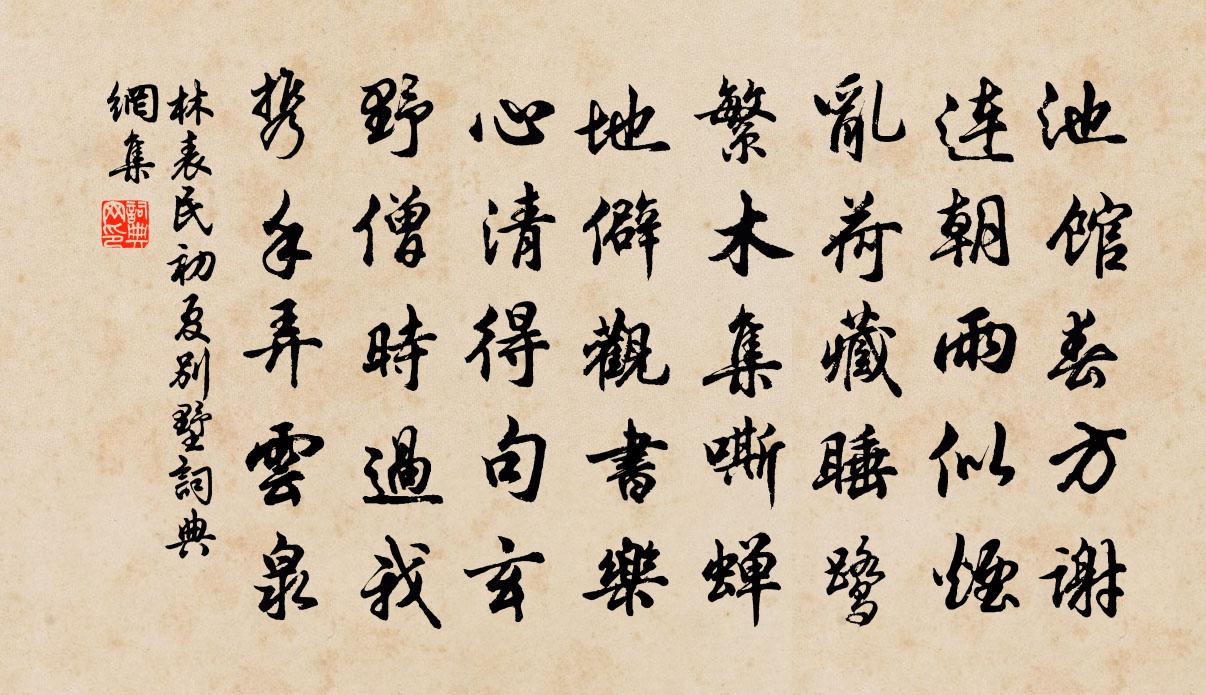 池馆春方謝
連朝雨似煙
亂荷藏睡鷺
繁木集嘶蝉
地僻觀書樂
心清得句玄
野僧時過我
携手弄雲泉
林表民初夏别墅詞典
網集
詞典網印